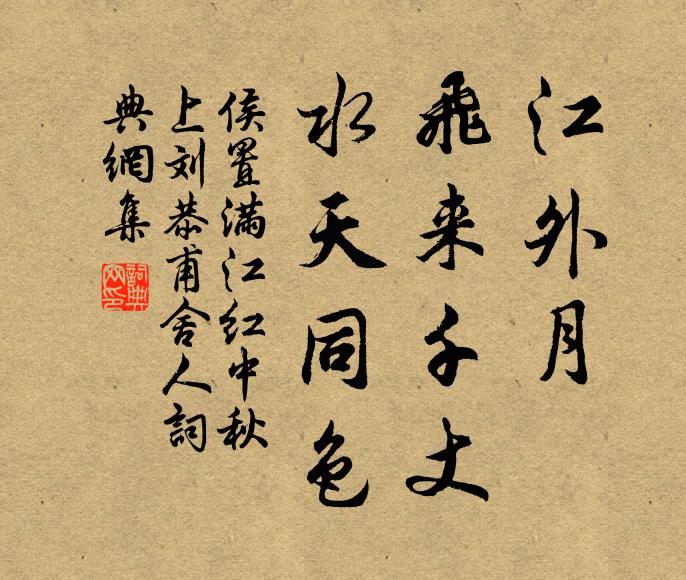 江外月
飛来千丈
水天同色
侯置满江红中秋
上刘恭甫舍人詞
典網集
詞典网印